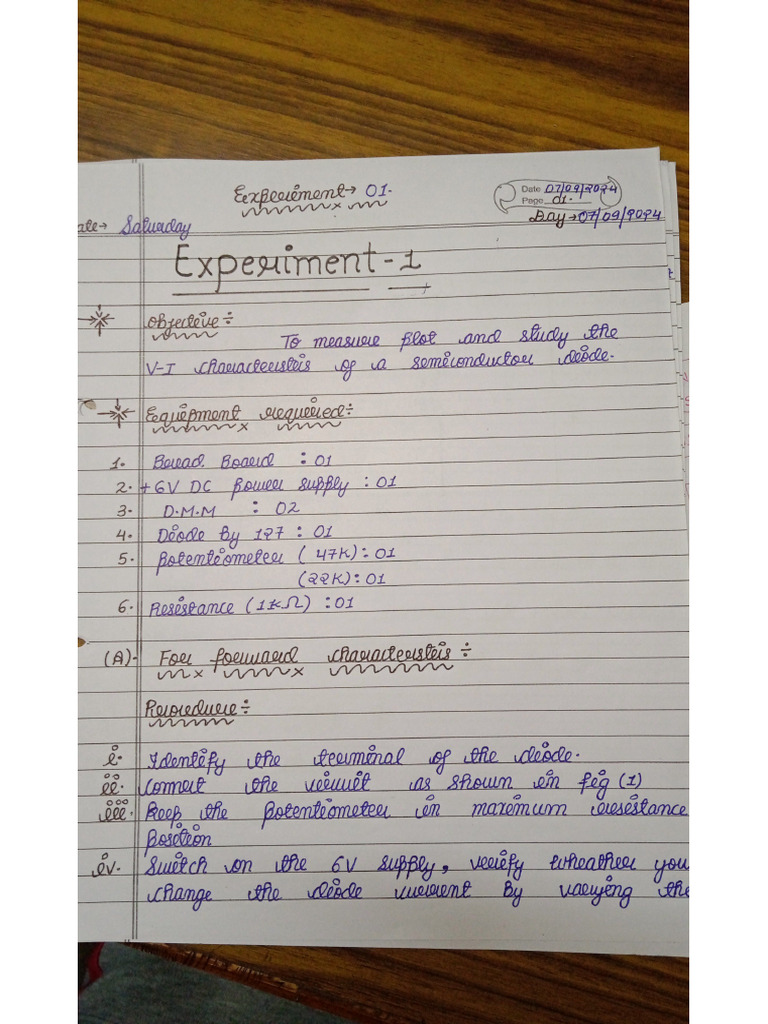 Experiment → 01.
Date 07/09/2024
Page 01.
ate → Saturday
Day → 07/09/2024
Experiment - 1
Objective ÷
To measure plot and study the
V-I characteristis of a semiconductor diode.
Equipment required ÷
1. Bread Board : 01
2. +6V DC power supply : 01
3. D.M.M : 02
4. Diode by 127 : 01
5. Potentiometer ( 47K) : 01
(22K) : 01
6. Resistance (1KΩ) : 01
(A). For forward characterstis ÷
Procedure ÷
i. Identify the terminal of the diode.
ii. Connect the circuit as shown in fig (1)
iii. Keep the potentiometer in maximum resistance
position
iv. Switch on the 6V supply, verify wheather you
change the diode current by varying the